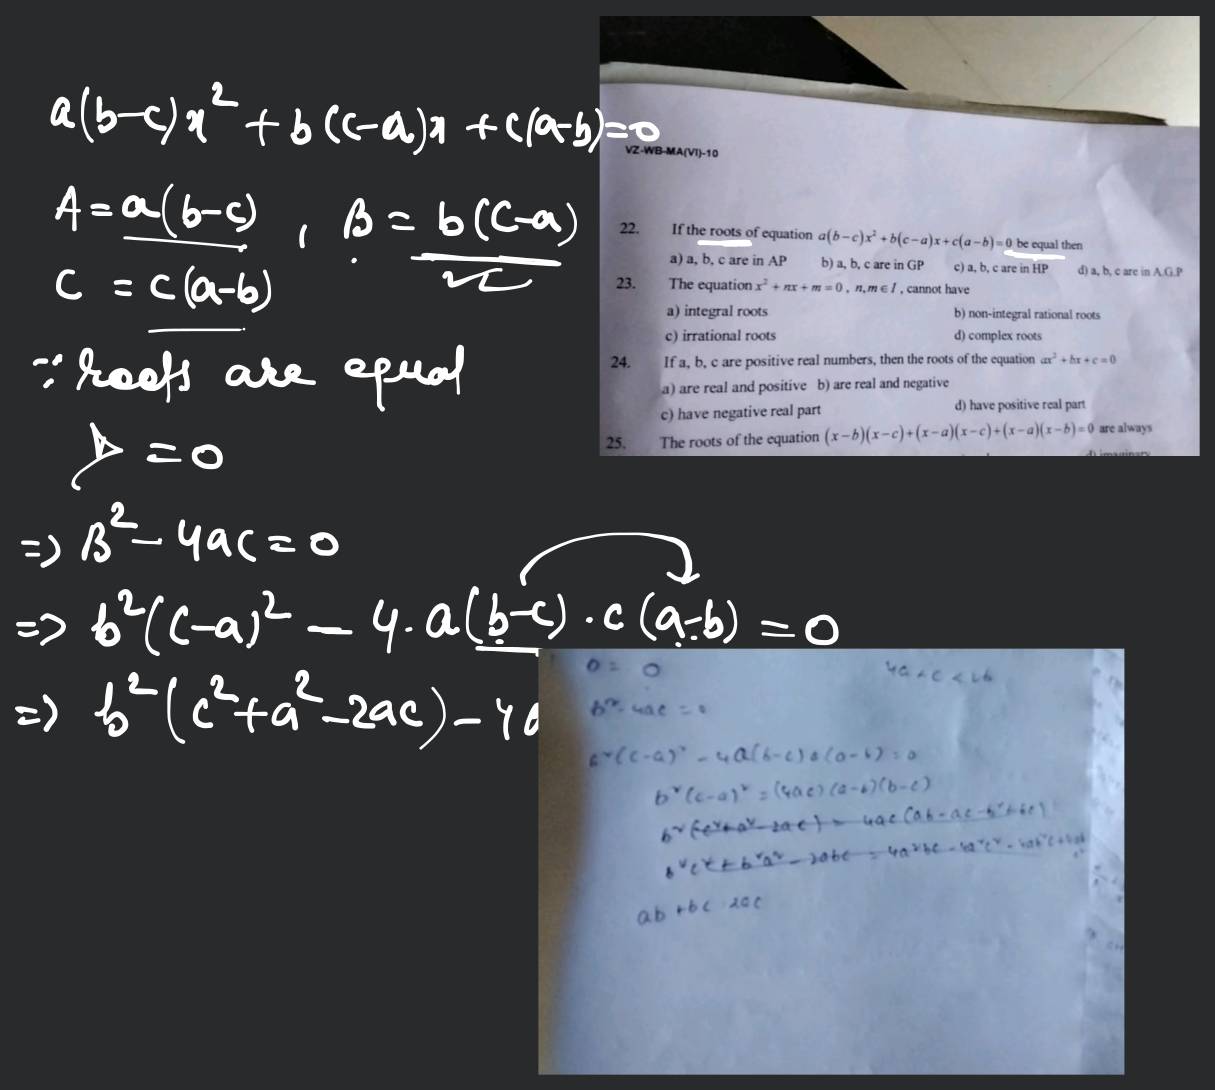 a(b-c)x² + b(c-a)x + c(a-b)=0
A = a(b-c) , B = b(c-a)
C = c(a-b)
∵ roots are equal
D = 0
=> B² - 4ac = 0
=> b²(c-a)² - 4.a(b-c).c(a-b) = 0
=> b²(c²+a²-2ac) - 4a
VZ-WB-MA(VI)-10
22. If the roots of equation a(b-c)x²+b(c-a)x+c(a-b)=0 be equal then
a) a, b, c are in AP b) a, b, c are in GP c) a, b, c are in HP d) a, b, c are in A.G.P
23. The equation x² + nx + m = 0, n, m ∈ I, cannot have
a) integral roots b) non-integral rational roots
c) irrational roots d) complex roots
24. If a, b, c are positive real numbers, then the roots of the equation ax² + bx + c = 0
a) are real and positive b) are real and negative
c) have negative real part d) have positive real part
25. The roots of the equation (x-b)(x-c)+(x-a)(x-c)+(x-a)(x-b)=0 are always
d) imaginary
D = 0
b² - 4ac = 0
b²(c-a)² - 4a(b-c)c(a-b) = 0
b²(c-a)² = (4ac)(a-b)(b-c)
b²(c²+a²-2ac) = 4ac(ab-ac-b²+bc)
ab + bc 2ac